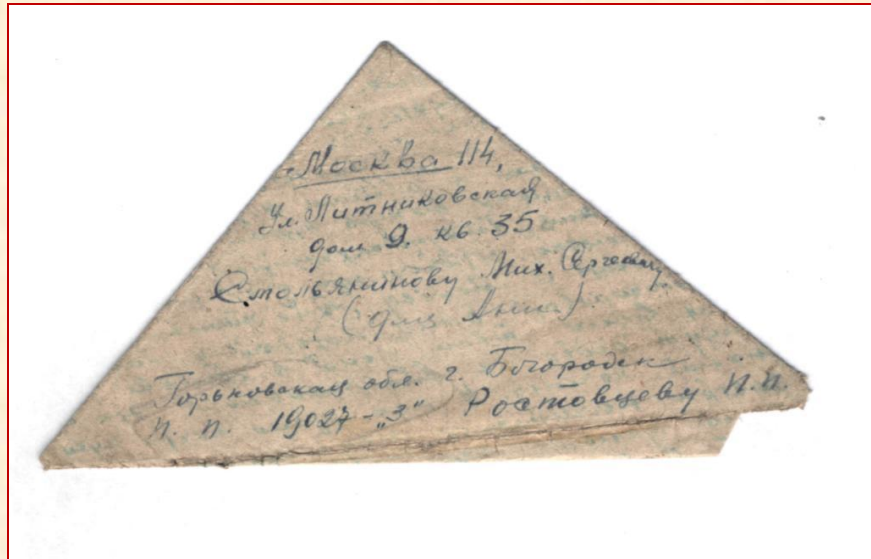 Москва 114,
Ул. Литниковская
дом 9. кв. 35
Смольянинову Мих. Сергеевичу
(для Анны)
Горьковская обл. г. Богородск
п. п. 19027-„З" Ростовцеву П. П.